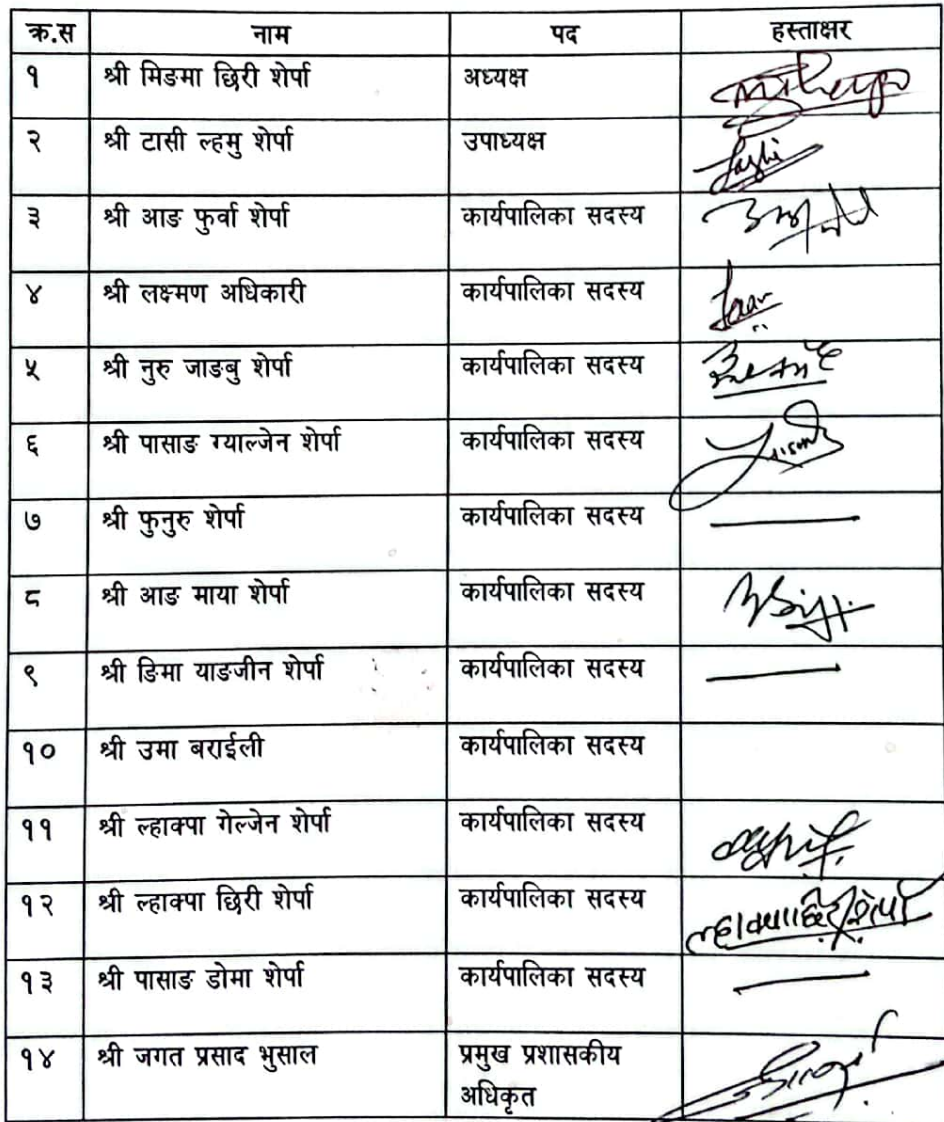 क्र.स नाम पद हस्ताक्षर
१ श्री मिङमा छिरी शेर्पा अध्यक्ष
२ श्री टासी ल्हमु शेर्पा उपाध्यक्ष
३ श्री आङ फुर्वा शेर्पा कार्यपालिका सदस्य
४ श्री लक्ष्मण अधिकारी कार्यपालिका सदस्य
५ श्री नुरु जाङबु शेर्पा कार्यपालिका सदस्य
६ श्री पासाङ ग्याल्जेन शेर्पा कार्यपालिका सदस्य
७ श्री फुनुरु शेर्पा कार्यपालिका सदस्य
८ श्री आङ माया शेर्पा कार्यपालिका सदस्य
९ श्री ङिमा याङजीन शेर्पा कार्यपालिका सदस्य
१० श्री उमा बराईली कार्यपालिका सदस्य
११ श्री ल्हाक्पा गेल्जेन शेर्पा कार्यपालिका सदस्य
१२ श्री ल्हाक्पा छिरी शेर्पा कार्यपालिका सदस्य ल्हाक्पा छिरी शेर्पा
१३ श्री पासाङ डोमा शेर्पा कार्यपालिका सदस्य
१४ श्री जगत प्रसाद भुसाल प्रमुख प्रशासकीय
अधिकृत